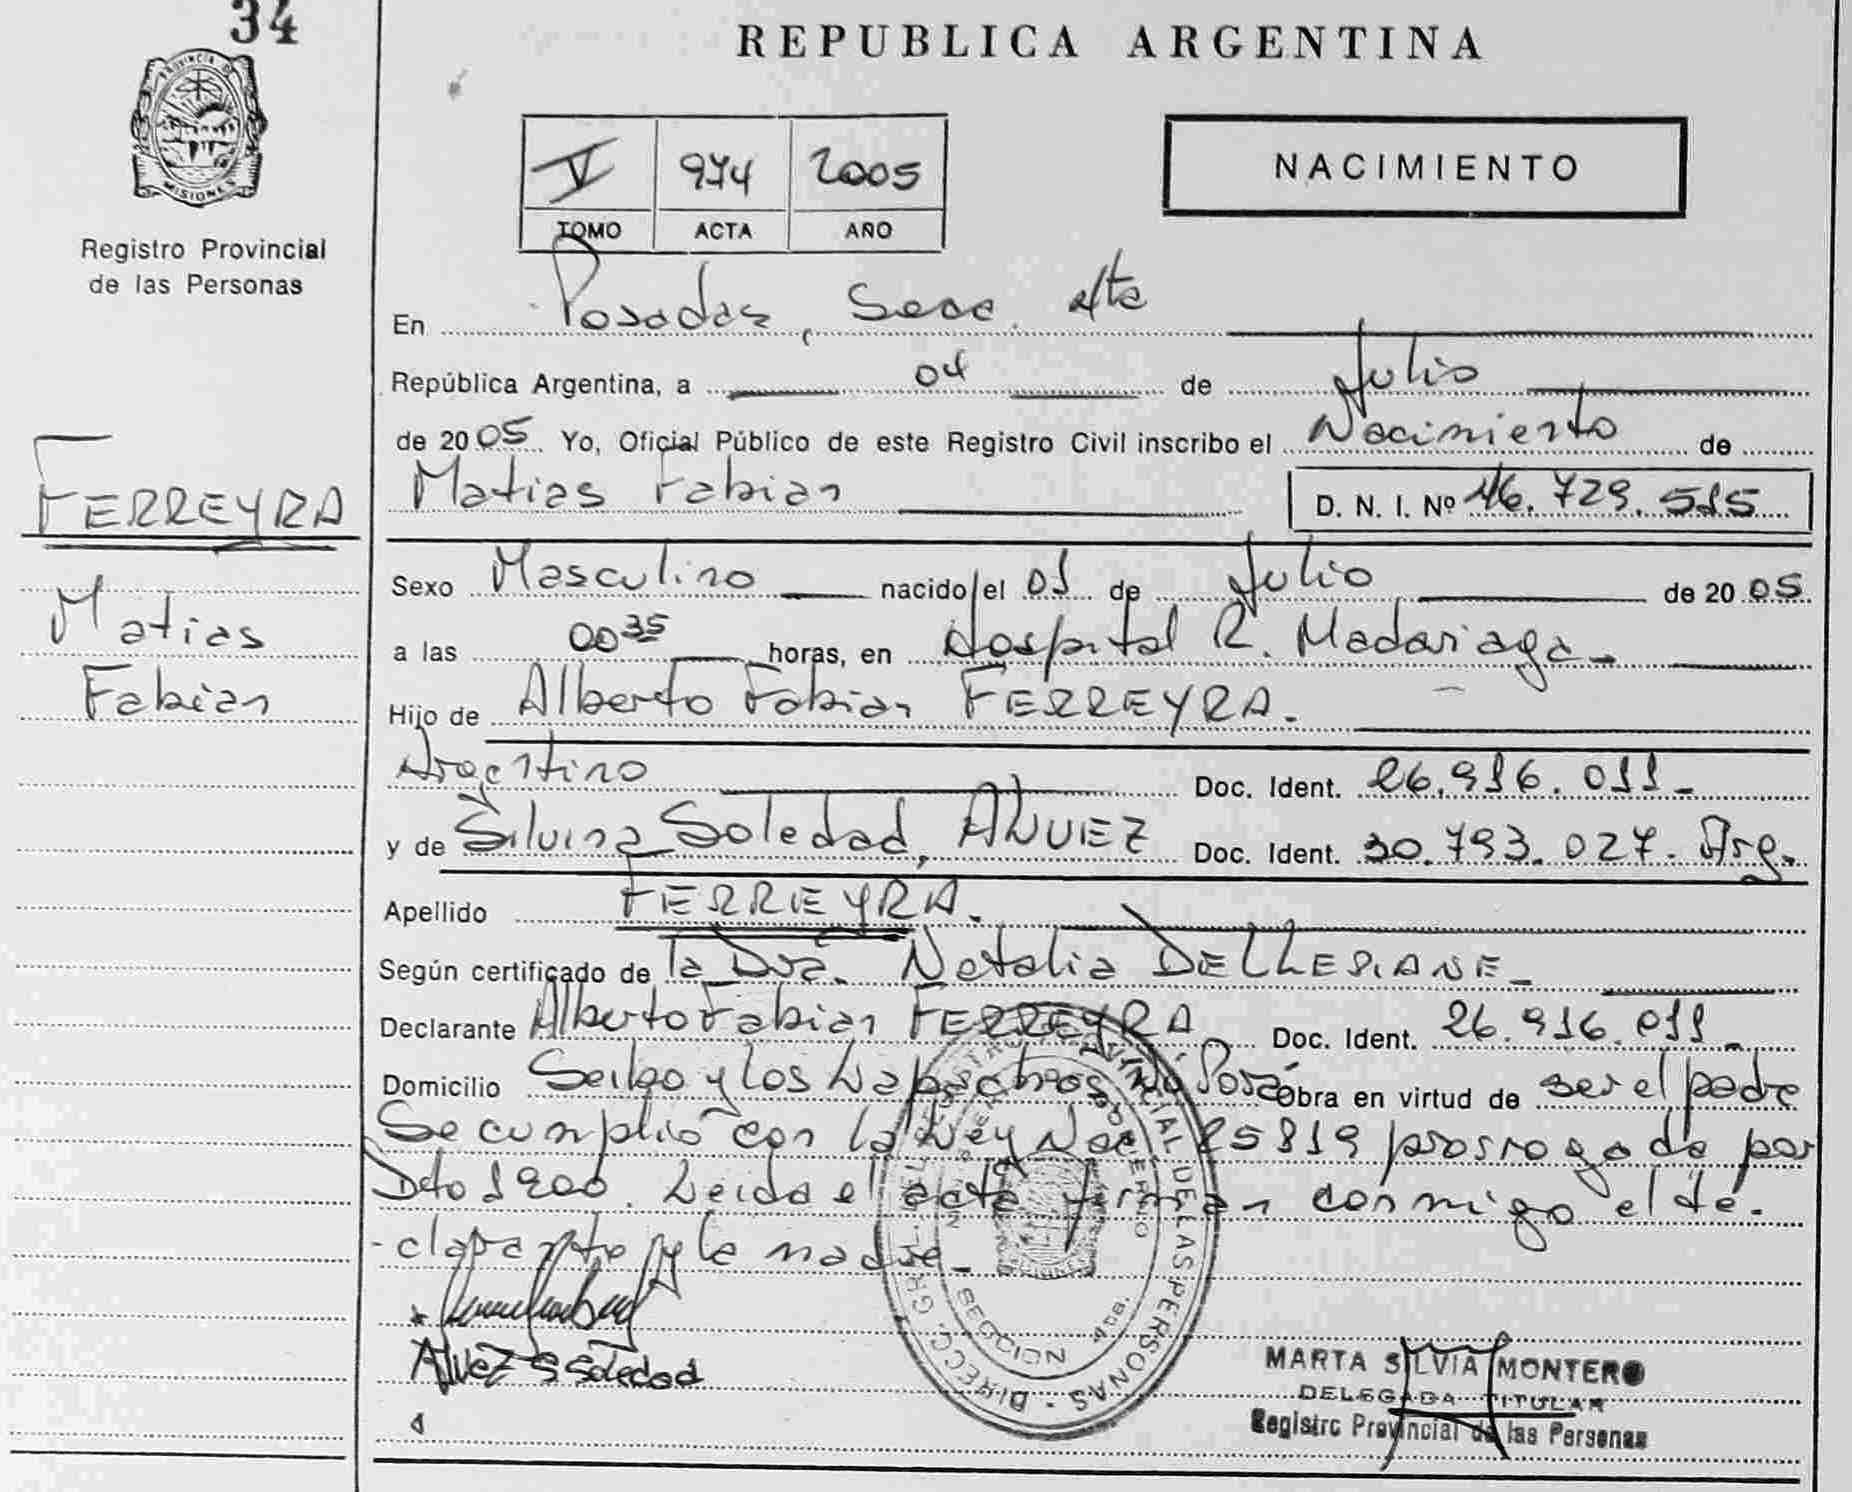 34
PROVINCIA DE
MISIONES
Registro Provincial
de las Personas
REPUBLICA ARGENTINA
V 974 2005
TOMO ACTA AÑO
NACIMIENTO
En Posadas, Secc. 4ta
República Argentina, a 04 de Julio
de 2005 Yo, Oficial Público de este Registro Civil inscribo el Nacimiento de
Matias Fabian D. N. I. Nº 46.729.515
FERREYRA
Matias
Fabian
Sexo Masculino nacido el 01 de Julio de 2005
a las 00 35 horas, en Hospital R. Madariaga.
Hijo de Alberto Fabian FERREYRA.
Argentino Doc. Ident. 26.916.011
y de Silvina Soledad, Doc. Ident. 30.793.027. Arg.
Apellido FERREYRA.
Según certificado de la Dra. Natalia
Declarante Alberto Fabian FERREYRA Doc. Ident. 26.916.011
Domicilio Seibo y los Obra en virtud de ser el padre
Se cumplió con la Ley Nac 25819 prorrogada por
Dto 1900. Leida el acta firman conmigo el de
-clarante y la madre
Alvez S Soledad
MARTA SILVIA MONTERO
DELEGADA TITULAR
Registro Provincial de las Personas